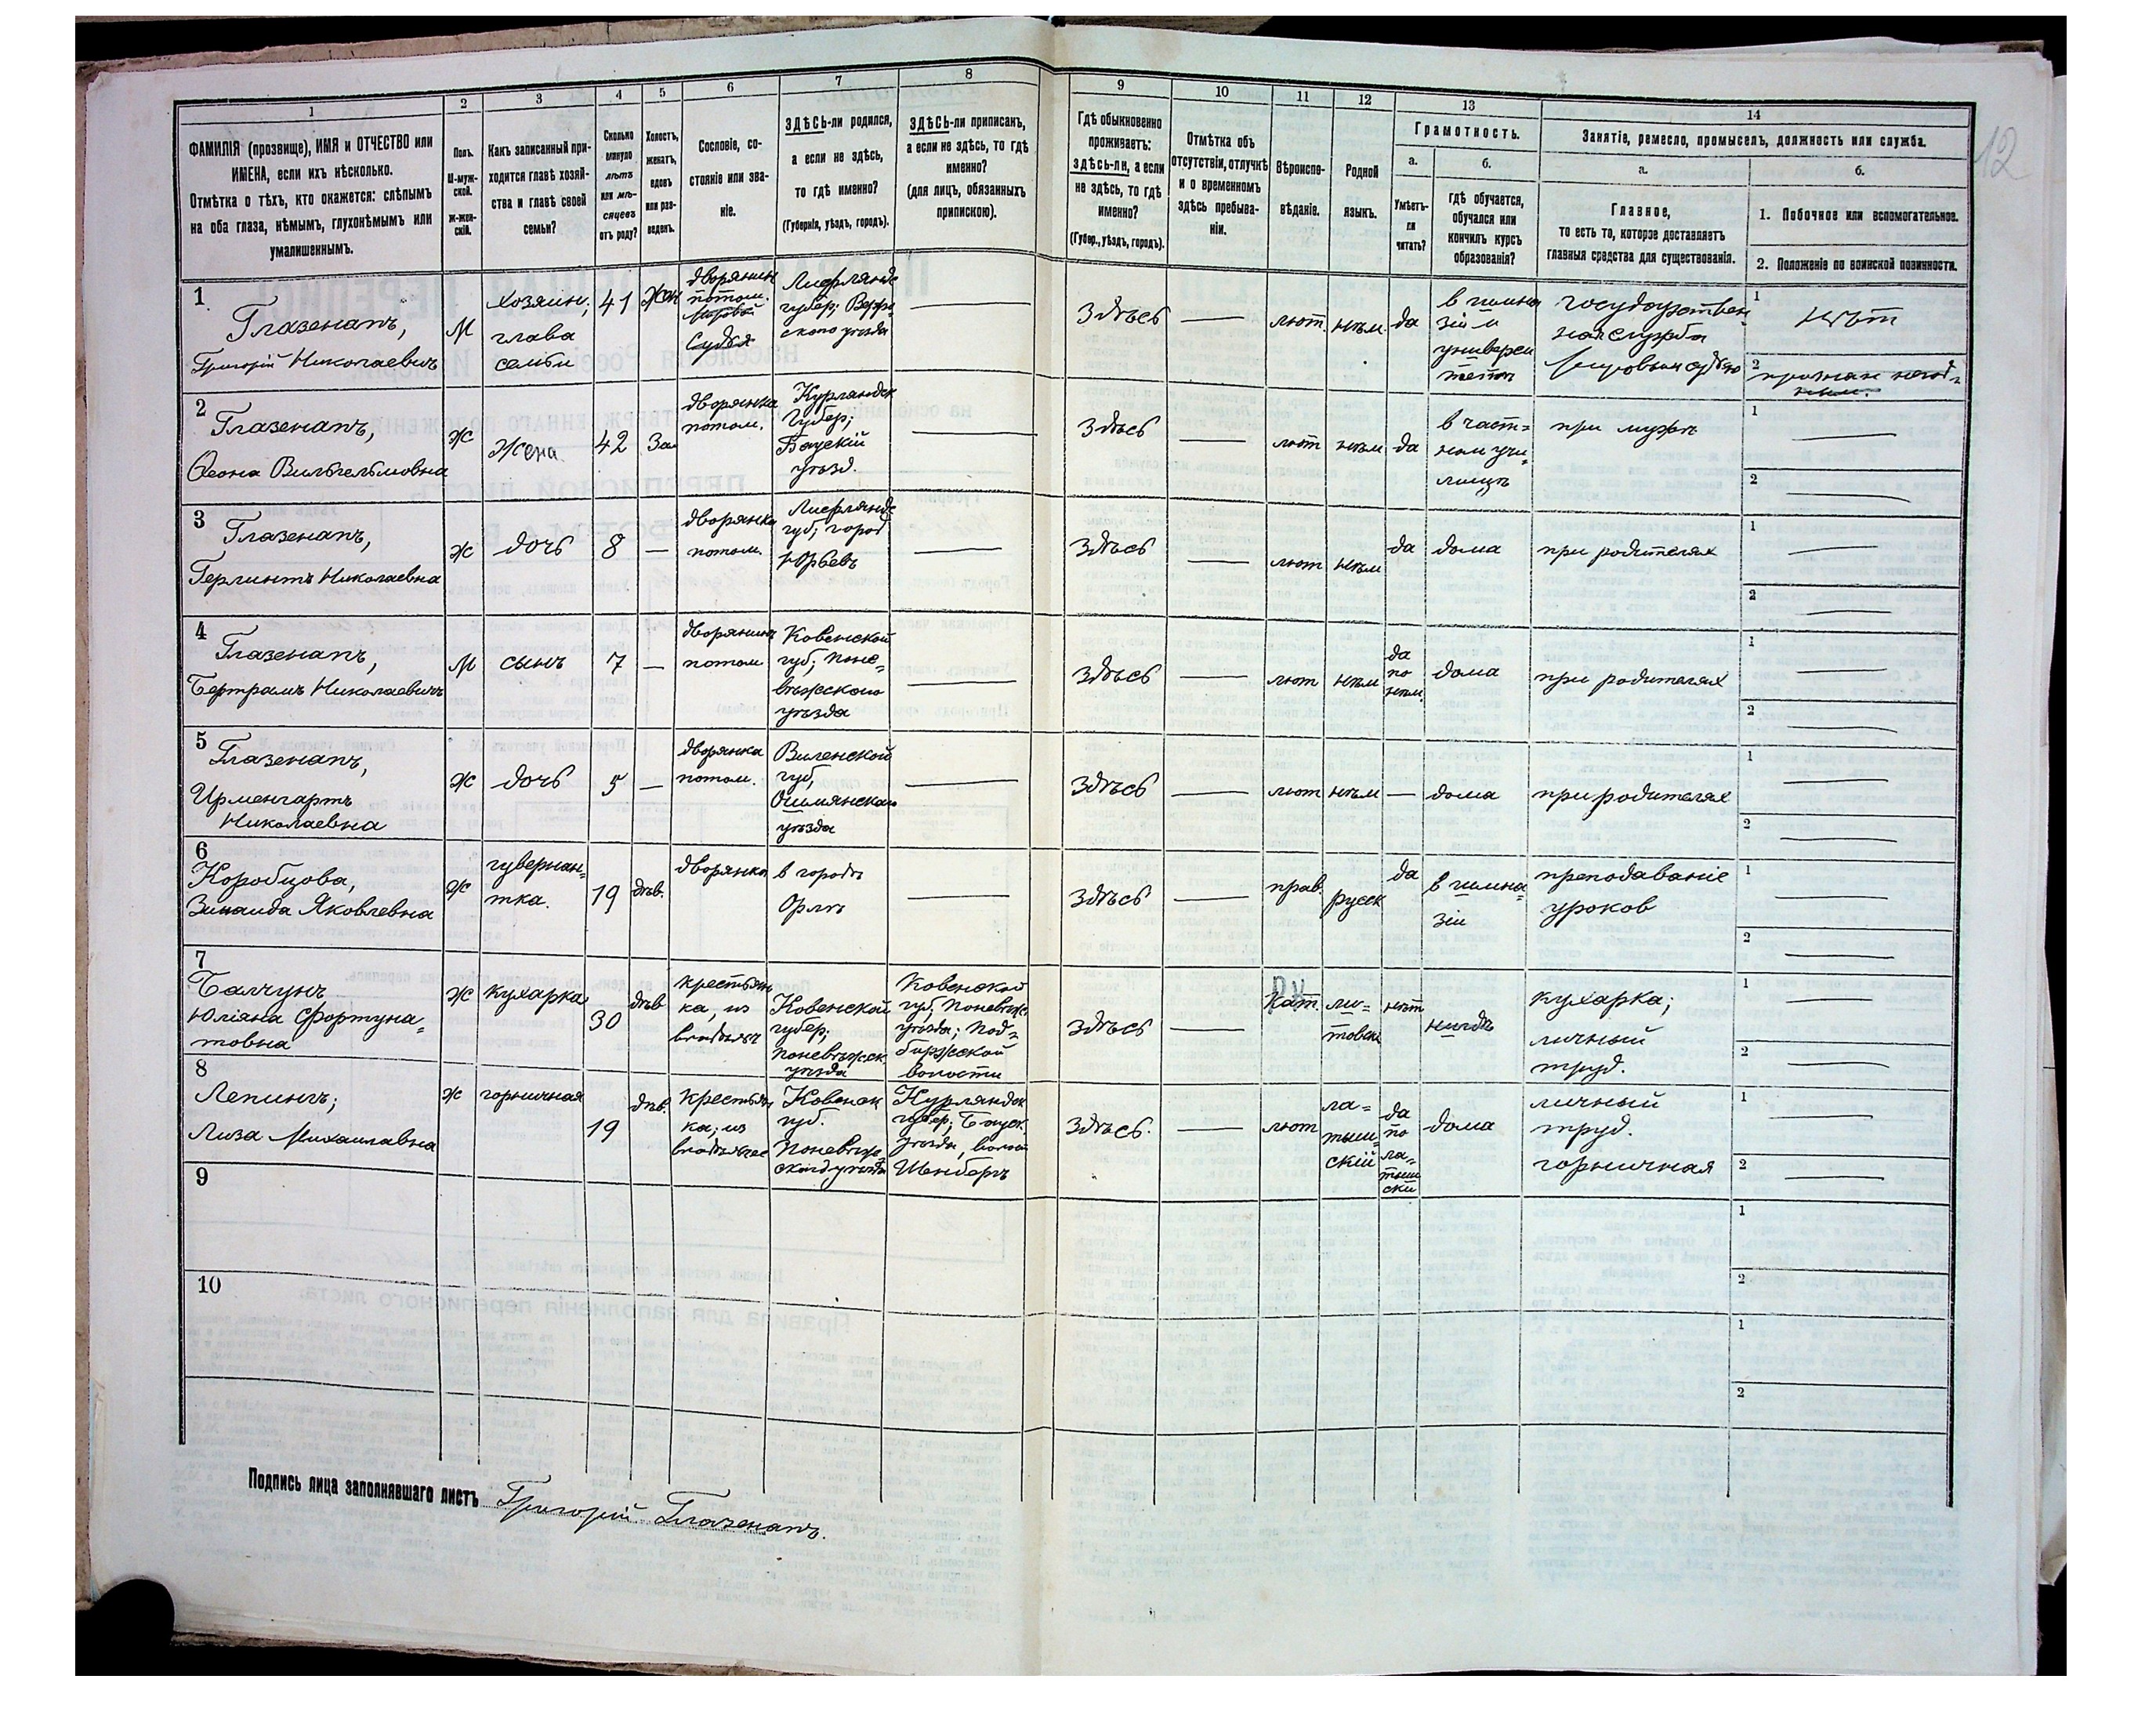 1
2
3
4
5
6
7
8
9
10
11
12
13
14
ФАМИЛІЯ (прозвище), ИМЯ и ОТЧЕСТВО или
ИМЕНА, если ихъ нѣсколько.
Отмѣтка о тѣхъ, кто окажется: слѣпымъ
на оба глаза, нѣмымъ, глухонѣмымъ или
умалишеннымъ.
Полъ.
М-муж-
ской.
ж-жен-
скій.
Какъ записанный при-
ходится главѣ хозяй-
ства и главѣ своей
семьи?
Сколько
минуло
лѣтъ
или мѣ-
сяцевъ
отъ роду?
Холостъ,
женатъ,
вдовъ
или раз-
веденъ.
Сословіе, со-
стояніе или зва-
ніе.
ЗДѢСЬ-ли родился,
а если не здѣсь,
то гдѣ именно?
(Губернія, уѣздъ, городъ).
ЗДѢСЬ-ли приписанъ,
а если не здѣсь, то гдѣ
именно?
(для лицъ, обязанныхъ
припискою).
Гдѣ обыкновенно
проживаетъ:
здѣсь-ли, а если
не здѣсь, то гдѣ
именно?
(Губер., уѣздъ, городъ).
Отмѣтка объ
отсутствіи, отлучкѣ
и о временномъ
здѣсь пребыва-
ніи.
Вѣроиспо-
вѣданіе.
Родной
языкъ.
Грамотность.
а.
б.
Умѣетъ-
ли
читать?
Гдѣ обучается,
обучался или
кончилъ курсъ
образованія?
Занятіе, ремесло, промыселъ, должность или служба.
а.
б.
Главное,
то есть то, которое доставляетъ
главныя средства для существованія.
1. Побочное или вспомогательное.
2. Положеніе по воинской повинности.
12
1
Глазенапъ,
Григорій Николаевичъ
М
хозяинъ,
глава
семьи
41
Жен
дворянинъ
потом.
Мировой
Судья
Лифляндс
губер; Верро
ского уѣзда
Здѣсь
лют.
нѣм
да
в гимна
зіи и
универси
тетѣ
государствен
ная служба
Мировымъ судьею
1
нѣт
2
признан негод=
ным.
2
Глазенапъ,
Леона Вильгельмовна
Ж
Жена
42
За
дворянка
потом.
Курляндск
Губер;
Баускій
уѣзд.
Здѣсь
лют
нѣм
да
в част=
ном учи=
лищѣ
при мужѣ
1
2
3
Глазенапъ,
Герлинтъ Николаевна
Ж
дочь
8
дворянка
потом.
Лифляндс
губ; город
Юрьевъ
Здѣсь
лют
нѣм
да
дома
при родителях
1
2
4
Глазенапъ,
Бертрамъ Николаевичъ
М
сынъ
7
дворянинъ
потом
Ковенской
губ; Поне=
вѣжского
уѣзда
Здѣсь
лют
нѣм
да
по
нѣм.
дома
при родителях
1
2
5
Глазенапъ,
Ирменгартъ
Николаевна
Ж
дочь
5
дворянка
потом.
Виленской
губ,
Ошмянскаго
уѣзда
Здѣсь
лют
нѣм
дома
при родителях
1
2
6
Коробцова,
Зинаида Яковлевна
Ж
гувернан=
тка.
19
дѣв.
дворянка
в городѣ
Орлѣ
Здѣсь
прав.
русск
да
в гимна=
зіи
преподаваніе
уроков
1
2
7
Балчунъ
Юліяна Фортуна=
товна
Ж
кухарка
30
дѣв
крестьян
ка, из
Ковенской
губер;
Поневѣжск.
уѣзда
Ковенской
губ; Поневѣж.
уѣзда; Под=
биржской
волости
Здѣсь
Кат.
ли=
товск
нѣт
нигдѣ
кухарка;
личный
труд.
1
2
8
Лепинъ;
Лиза Михаиловна
Ж
горничная
19
дѣв.
Крестьян
ка; из
Ковенск
губ.
Поневѣж=
скаго уѣзда
Курляндск
губер; Бауск
уѣзда,
Шенбергъ
Здѣсь.
лют
ла=
тыш=
скій
да
по
ла=
тыш
ски
дома
личный
труд.
горничная
1
2
9
1
2
10
1
2
Подпись лица заполнявшаго листъ Григорій Глазенапъ.